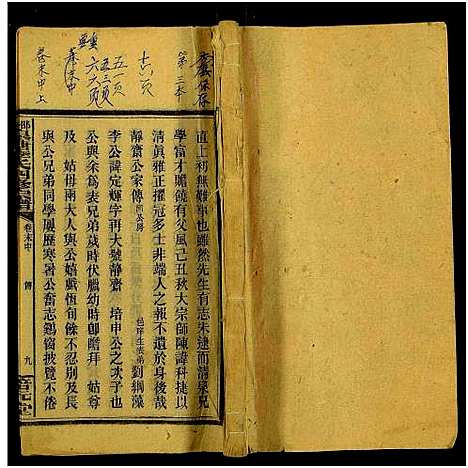 慶保存
第三本
十六頁
五一頁
五三頁
六六頁
卷末中
卷末中上
直上初無難事也雖然先生有志未逮而清泉兄
學富才贍饒有父風己丑秋大宗師陳諱科捷以
清眞雅正擢冠多士非端人之報不遺於身後哉
靜齋公家傳
邑庠生表弟劉綱藻
李公諱定輝字再大號靜齋 培申公之次子也
公與余爲表兄弟歲時伏臘幼時卽贈拜 姑尊
及 姑母兩大人與公嬉戲恆旬餘不忍別及長
與公兄弟同學屢歷寒暑公奮志鷄窗披覽不倦
卷末中 傳 九